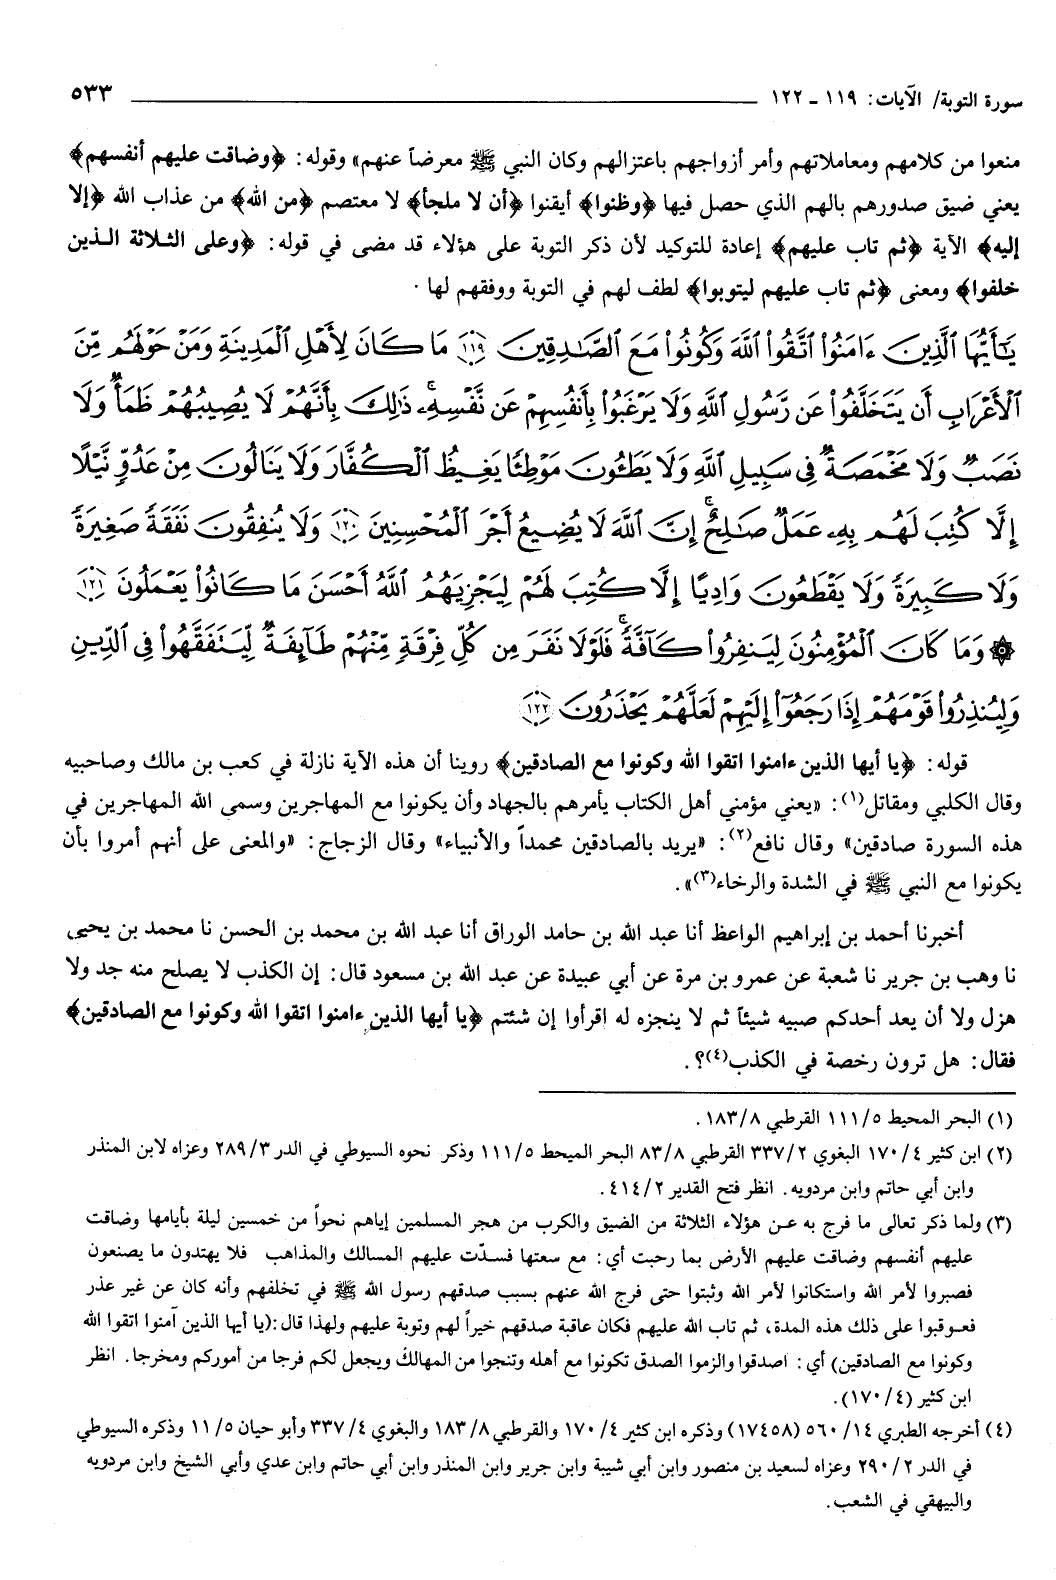 سورة التوبة/ الآيات: ١١٩ ـ ١٢٢ ٥٣٣
منعوا من كلامهم ومعاملاتهم وأمر أزواجهم باعتزالهم وكان النبي ﷺ معرضاً عنهم» وقوله: ﴿وضاقت عليهم أنفسهم﴾
يعني ضيق صدورهم بالهم الذي حصل فيها ﴿وظنوا﴾ أيقنوا ﴿أن لا ملجأ﴾ لا معتصم ﴿من الله﴾ من عذاب الله ﴿إلا
إليه﴾ الآية ﴿ثم تاب عليهم﴾ إعادة للتوكيد لأن ذكر التوبة على هؤلاء قد مضى في قوله: ﴿وعلى الثلاثة الذين
خلفوا﴾ ومعنى ﴿ثم تاب عليهم ليتوبوا﴾ لطف لهم في التوبة ووفقهم لها.
يَـٰٓأَيُّهَا ٱلَّذِينَ ءَامَنُوا۟ ٱتَّقُوا۟ ٱللَّهَ وَكُونُوا۟ مَعَ ٱلصَّـٰدِقِينَ ١١٩ مَا كَانَ لِأَهْلِ ٱلْمَدِينَةِ وَمَنْ حَوْلَهُم مِّنَ
ٱلْأَعْرَابِ أَن يَتَخَلَّفُوا۟ عَن رَّسُولِ ٱللَّهِ وَلَا يَرْغَبُوا۟ بِأَنفُسِهِمْ عَن نَّفْسِهِۦ ۚ ذَٰلِكَ بِأَنَّهُمْ لَا يُصِيبُهُمْ ظَمَأٌ وَلَا
نَصَبٌ وَلَا مَخْمَصَةٌ فِى سَبِيلِ ٱللَّهِ وَلَا يَطَـُٔونَ مَوْطِئًا يَغِيظُ ٱلْكُفَّارَ وَلَا يَنَالُونَ مِنْ عَدُوٍّ نَّيْلًا
إِلَّا كُتِبَ لَهُم بِهِۦ عَمَلٌ صَـٰلِحٌ ۚ إِنَّ ٱللَّهَ لَا يُضِيعُ أَجْرَ ٱلْمُحْسِنِينَ ١٢٠ وَلَا يُنفِقُونَ نَفَقَةً صَغِيرَةً
وَلَا كَبِيرَةً وَلَا يَقْطَعُونَ وَادِيًا إِلَّا كُتِبَ لَهُمْ لِيَجْزِيَهُمُ ٱللَّهُ أَحْسَنَ مَا كَانُوا۟ يَعْمَلُونَ ١٢١
۞ وَمَا كَانَ ٱلْمُؤْمِنُونَ لِيَنفِرُوا۟ كَآفَّةً ۚ فَلَوْلَا نَفَرَ مِن كُلِّ فِرْقَةٍ مِّنْهُمْ طَآئِفَةٌ لِّيَتَفَقَّهُوا۟ فِى ٱلدِّينِ
وَلِيُنذِرُوا۟ قَوْمَهُمْ إِذَا رَجَعُوٓا۟ إِلَيْهِمْ لَعَلَّهُمْ يَحْذَرُونَ ١٢٢
قوله: ﴿يا أيها الذين ءامنوا اتقوا الله وكونوا مع الصادقين﴾ روينا أن هذه الآية نازلة في كعب بن مالك وصاحبيه
وقال الكلبي ومقاتل(١): «يعني مؤمني أهل الكتاب يأمرهم بالجهاد وأن يكونوا مع المهاجرين وسمى الله المهاجرين في
هذه السورة صادقين» وقال نافع(٢): «يريد بالصادقين محمداً والأنبياء» وقال الزجاج: «والمعنى على أنهم أمروا بأن
يكونوا مع النبي ﷺ في الشدة والرخاء(٣)».
أخبرنا أحمد بن إبراهيم الواعظ أنا عبد الله بن حامد الوراق أنا عبد الله بن محمد بن الحسن نا محمد بن يحيى
نا وهب بن جرير نا شعبة عن عمرو بن مرة عن أبي عبيدة عن عبد الله بن مسعود قال: إن الكذب لا يصلح منه جد ولا
هزل ولا أن يعد أحدكم صبيه شيئاً ثم لا ينجزه له اقرأوا إن شئتم ﴿يا أيها الذين ءامنوا اتقوا الله وكونوا مع الصادقين﴾
فقال: هل ترون رخصة في الكذب(٤)؟.
(١) البحر المحيط ١١١/٥ القرطبي ١٨٣/٨.
(٢) ابن كثير ١٧٠/٤ البغوي ٣٣٧/٢ القرطبي ٨٣/٨ البحر الميحط ١١١/٥ وذكر نحوه السيوطي في الدر ٢٨٩/٣ وعزاه لابن المنذر
وابن أبي حاتم وابن مردويه. انظر فتح القدير ٤١٤/٢.
(٣) ولما ذكر تعالى ما فرج به عن هؤلاء الثلاثة من الضيق والكرب من هجر المسلمين إياهم نحواً من خمسين ليلة بأيامها وضاقت
عليهم أنفسهم وضاقت عليهم الأرض بما رحبت أي: مع سعتها فسدّت عليهم المسالك والمذاهب فلا يهتدون ما يصنعون
فصبروا لأمر الله واستكانوا لأمر الله وثبتوا حتى فرج الله عنهم بسبب صدقهم رسول الله ﷺ في تخلفهم وأنه كان عن غير عذر
فعوقبوا على ذلك هذه المدة، ثم تاب الله عليهم فكان عاقبة صدقهم خيراً لهم وتوبة عليهم ولهذا قال:(يا أيها الذين آمنوا اتقوا الله
وكونوا مع الصادقين) أي: اصدقوا والزموا الصدق تكونوا مع أهله وتنجوا من المهالك ويجعل لكم فرجا من أموركم ومخرجا. انظر
ابن كثير (١٧٠/٤).
(٤) أخرجه الطبري ١٤/ ٥٦٠ (١٧٤٥٨) وذكره ابن كثير ٤/ ١٧٠ والقرطبي ٨/ ١٨٣ والبغوي ٤/ ٣٣٧ وأبو حيان ٥/ ١١ وذكره السيوطي
في الدر ٢٩٠/٢ وعزاه لسعيد بن منصور وابن أبي شيبة وابن جرير وابن المنذر وابن أبي حاتم وابن عدي وأبي الشيخ وابن مردويه
والبيهقي في الشعب.